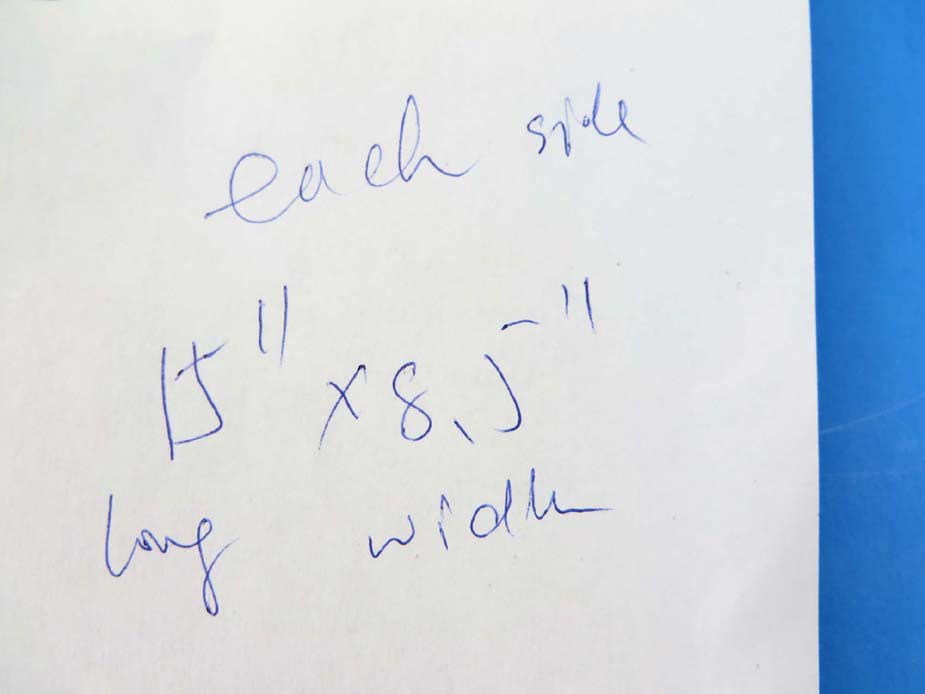 each side
15" x 8.5"
long width